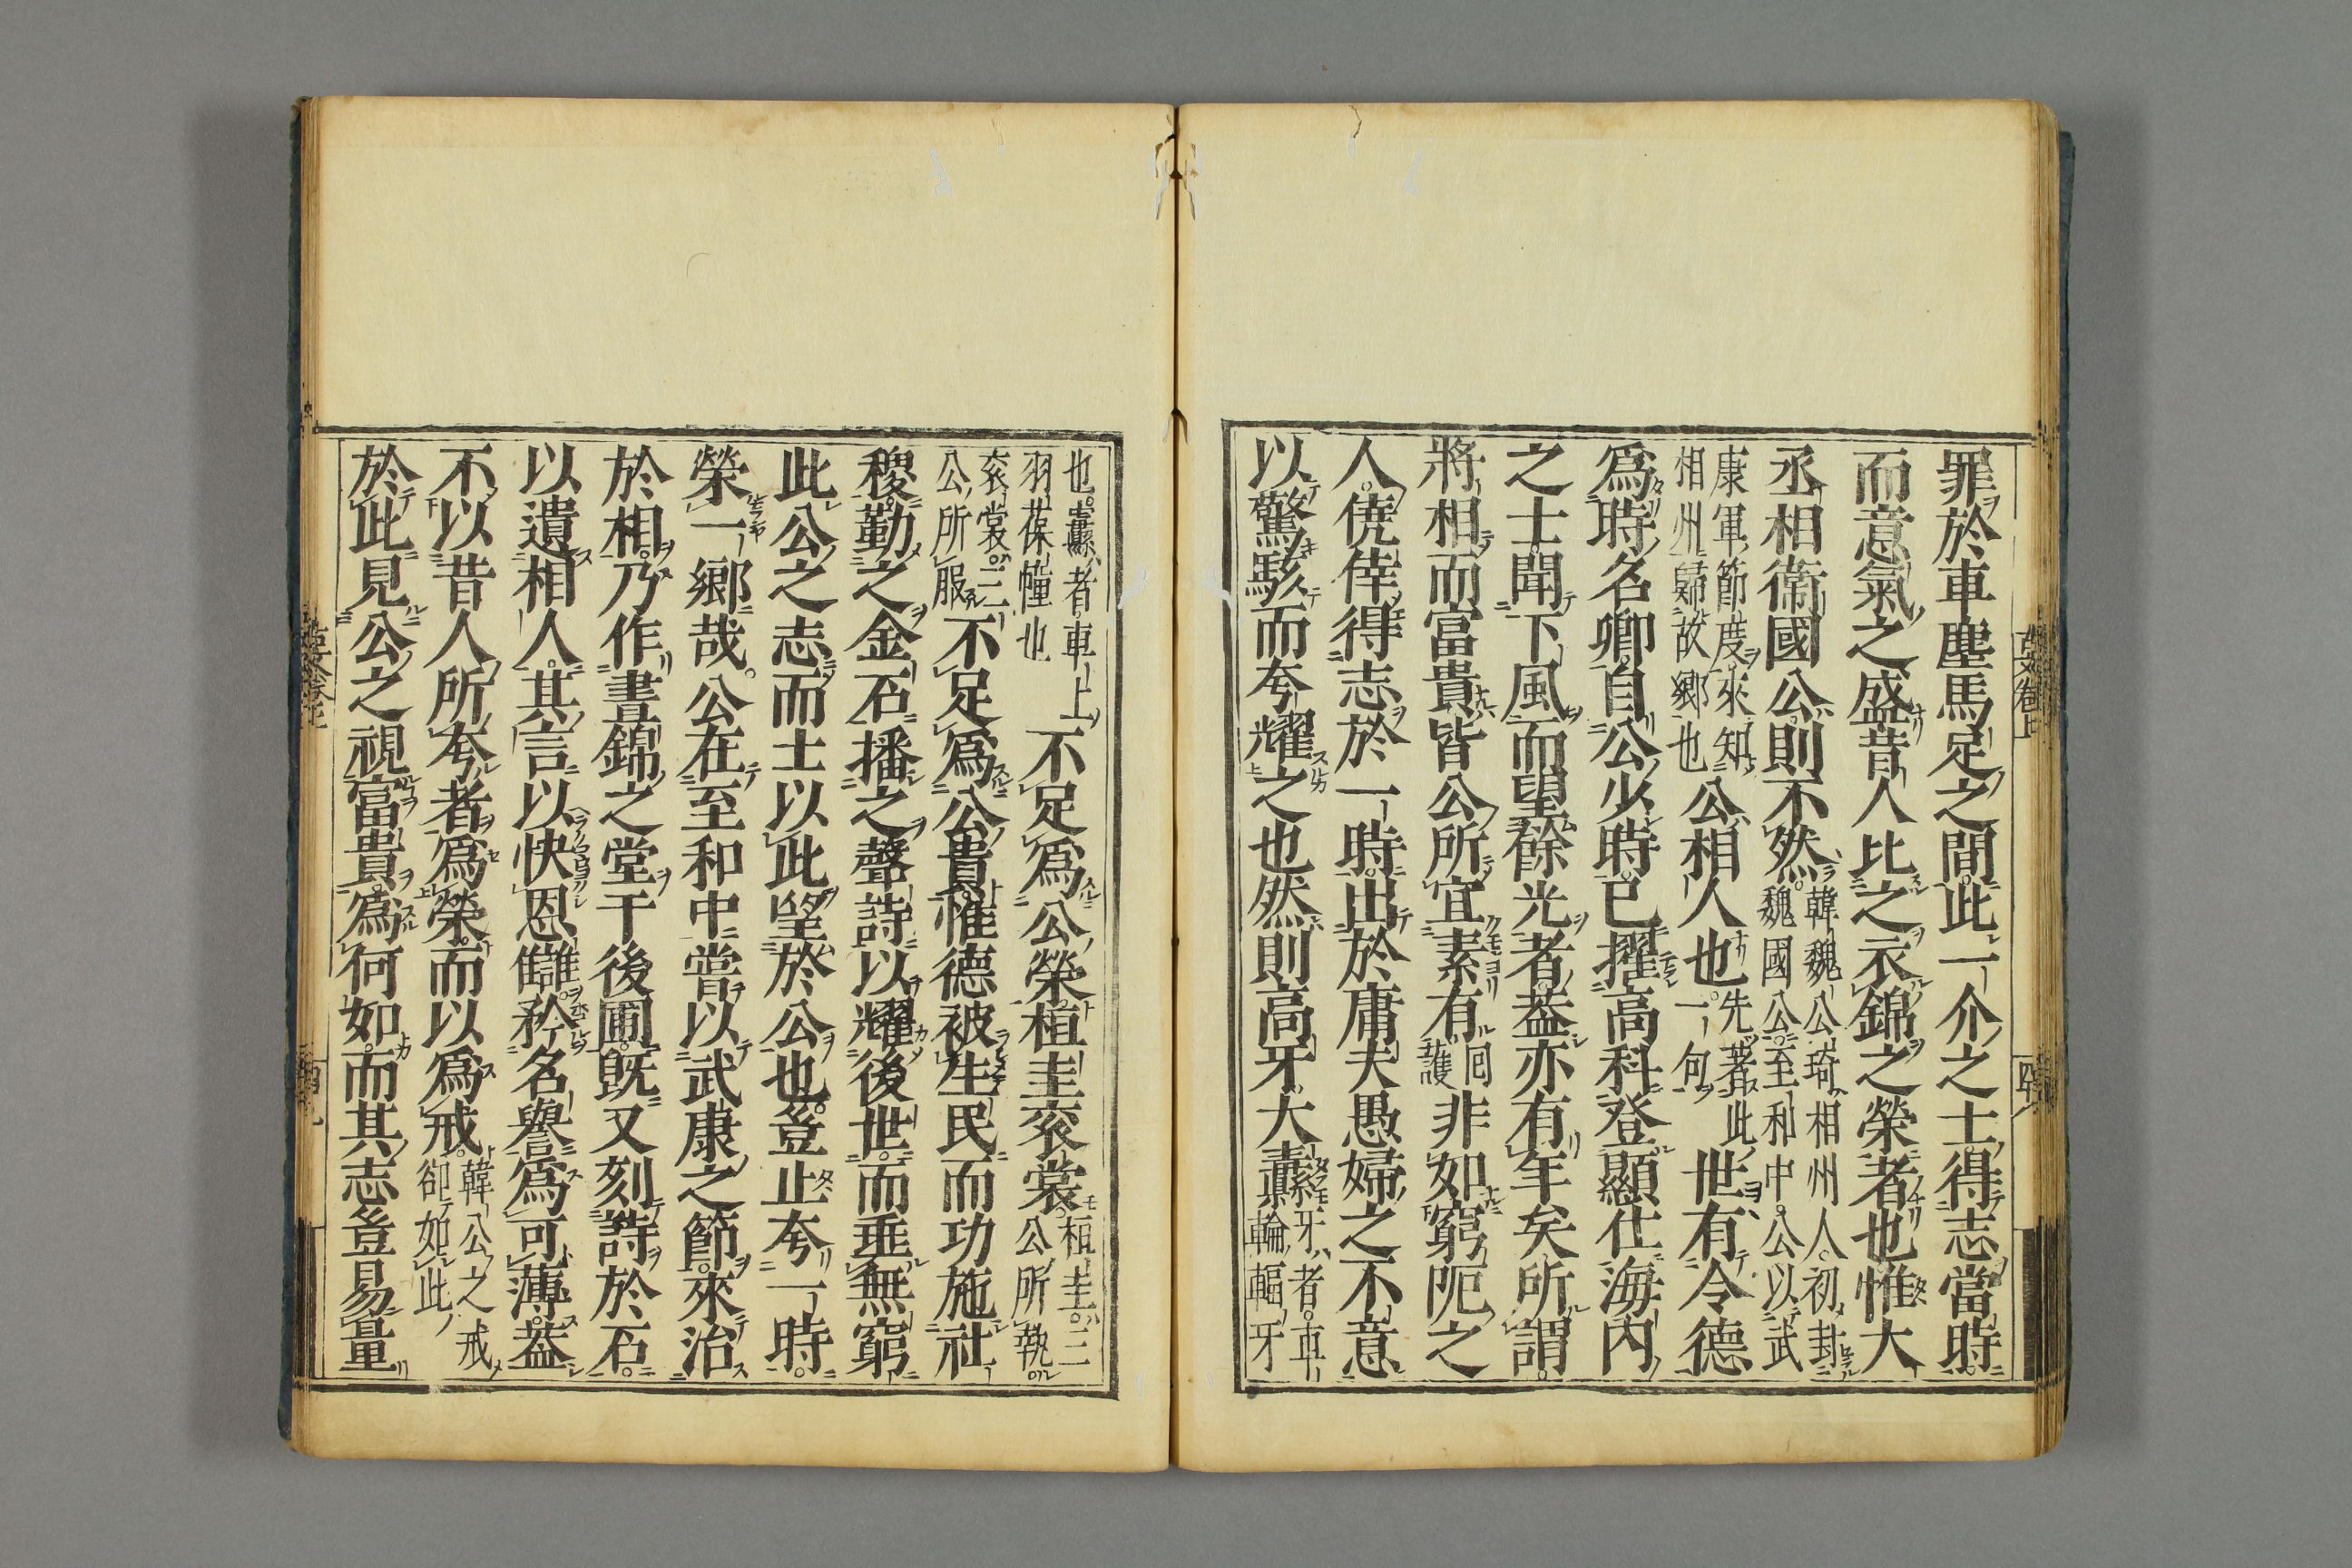 罪於車塵馬足之間此一介之士得志當時
而意氣之盛昔人比之衣錦之榮者也惟大
丞相衞國公則不然韓魏公琦相州人初封魏國公至和中公以武
康軍節度來知相州歸故鄕也公相人也先著此一何世有令德
爲時名卿自公少時已擢高科登顯仕海内
之士聞下風而望餘光者葢亦有年矣所謂
將相而富貴皆公所宜素有回護非如窮阨之
人僥倖得志於一時出於庸夫愚婦之不意
以驚駭而夸耀之也然則高牙大纛牙者車輪轀牙
也纛者車上羽葆幢也不足爲公榮植圭衮裳桓圭三公所執
衮裳三公所服不足爲公貴惟德被生民而功施社
稷勤之金石播之聲詩以耀後世而垂無窮
此公之志而士以此望於公也豈止夸一時
榮一鄕哉公在至和中嘗以武康之節來治
於相乃作晝錦之堂于後圃既又刻詩於石
以遺相人其言以快恩讎矜名譽爲可薄葢
不以昔人所夸者爲榮而以爲戒韓公之戒卻如此
於此見公之視富貴爲何如而其志豈易量